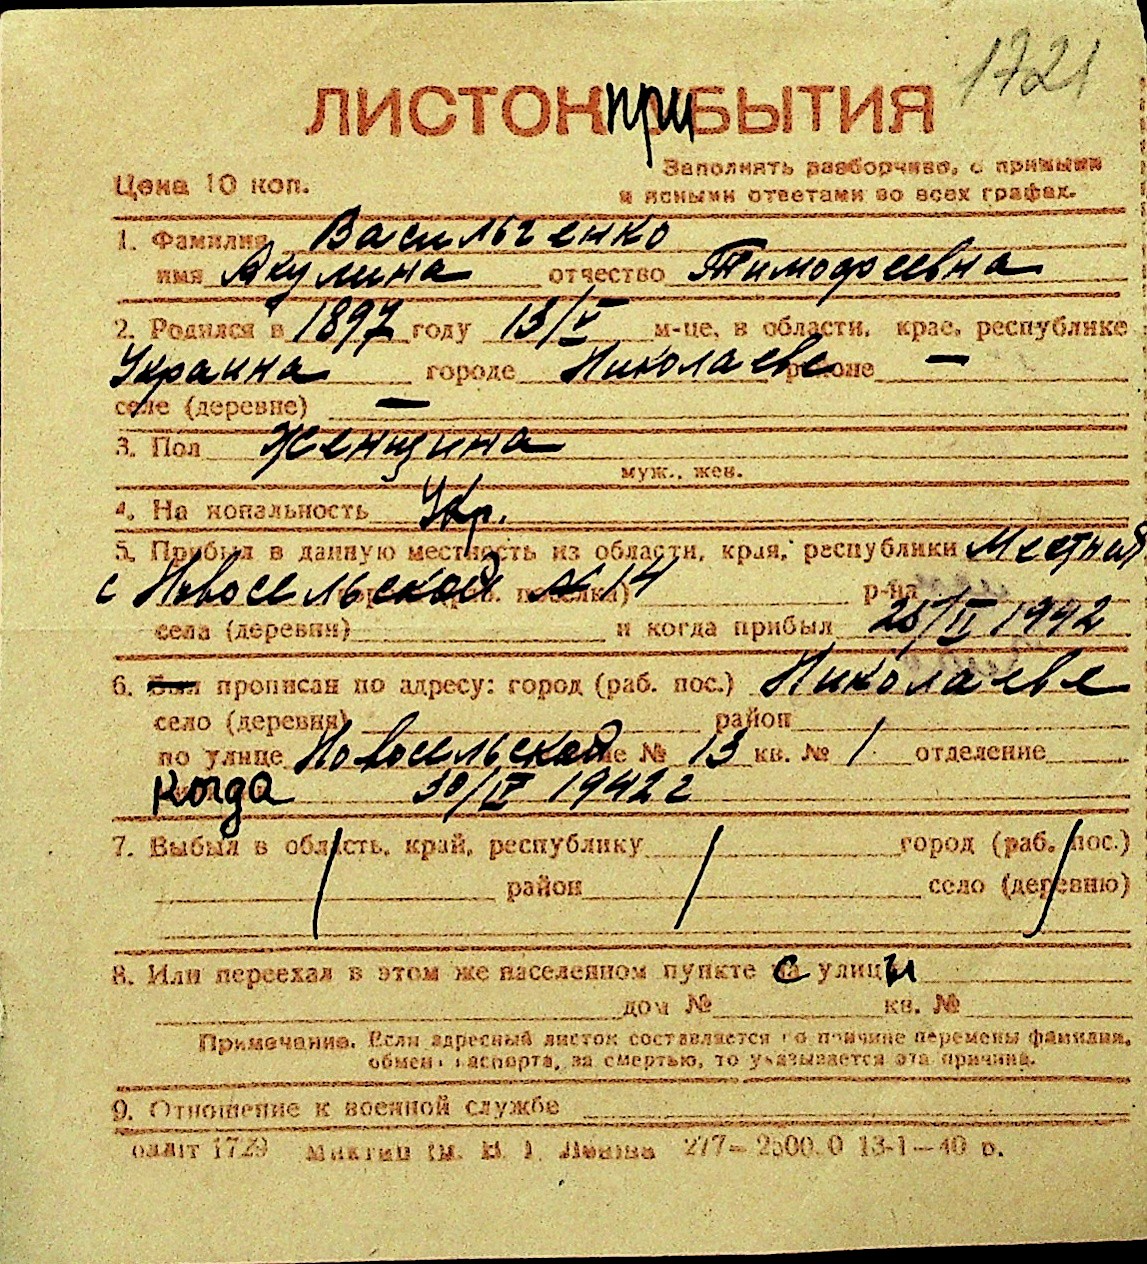 1721
ЛИСТОК ПРИБЫТИЯ
Цена 10 коп.
Заполнять разборчиво, с прямыми
и ясными ответами во всех графах.
1. Фамилия Васильченко
имя Акулина отчество Тимофеевна
2. Родился в 1897 году 13/V м-це, в области, крае, республике
Украина городе Николаеве районе —
селе (деревне) —
3. Пол Женщина
муж., жен.
4. Национальность Укр.
5. Прибыл в данную местность из области, края, республики Местная
с Новосельской № 14 р-на
села (деревни) и когда прибыл 1942
6. Был прописан по адресу: город (раб. пос.) Николаеве
село (деревня) район
по улице Новосельской № 13 кв. № 1 отделение
Когда 30/IV 1942 г
7. Выбыл в область, край, республику город (раб. пос.)
район село (деревню)
8. Или переехал в этом же населенном пункте с улицы
дом № кв. №
Примечание. Если адресный листок составляется по причине перемены фамилии,
обмена паспорта, за смертью, то указывается эта причина.
9. Отношение к военной службе
1729 277— 2500.0 13-1—40 р.